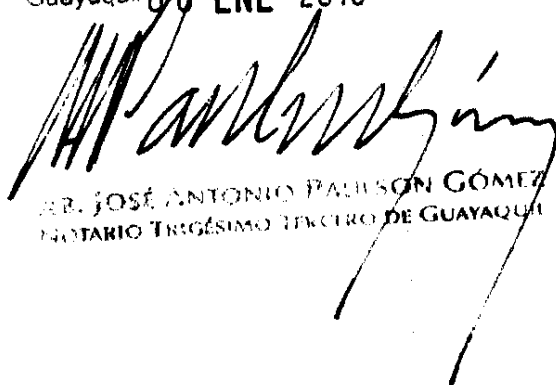 Guayaquil ENE
AB. JOSÉ ANTONIO PAULSON GÓMEZ
NOTARIO TRIGÉSIMO TERCERO DE GUAYAQUIL